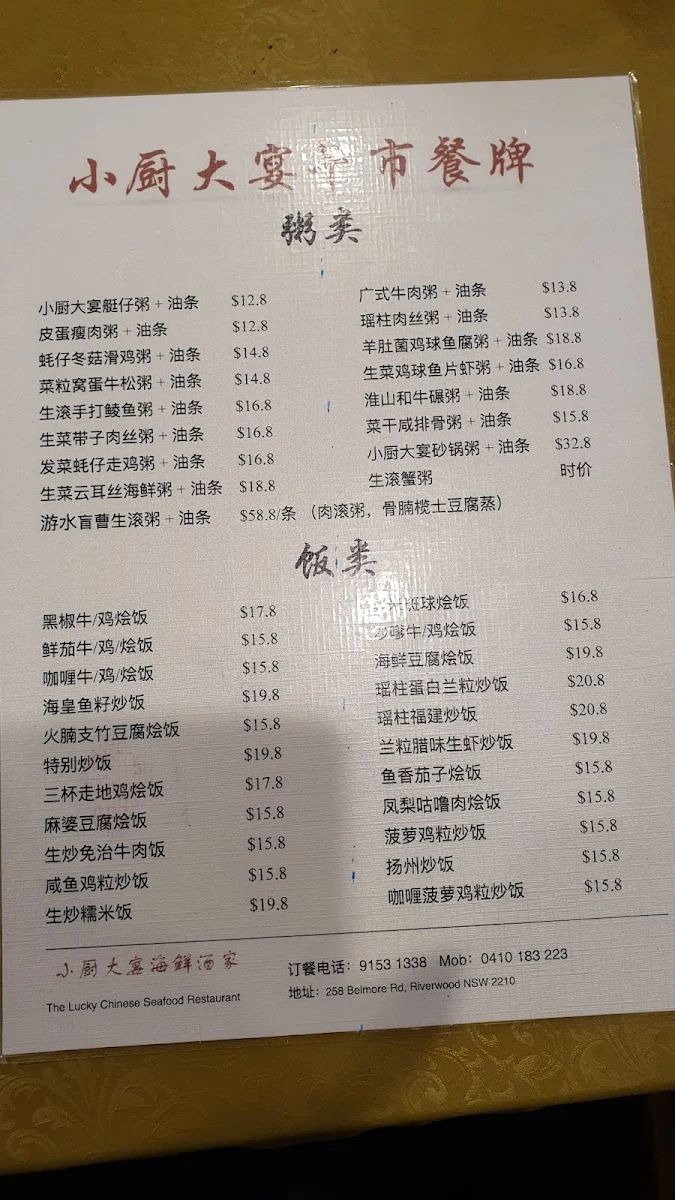 小厨大宴午市餐牌
粥类
小厨大宴艇仔粥 + 油条 $12.8
皮蛋瘦肉粥 + 油条 $12.8
蚝仔冬菇滑鸡粥 + 油条 $14.8
菜粒窝蛋牛松粥 + 油条 $14.8
生滚手打鲮鱼粥 + 油条 $16.8
生菜带子肉丝粥 + 油条 $16.8
发菜蚝仔走鸡粥 + 油条 $16.8
生菜云耳丝海鲜粥 + 油条 $18.8
游水盲曹生滚粥 + 油条 $58.8/条 （肉滚粥，骨腩榄士豆腐蒸）
广式牛肉粥 + 油条 $13.8
瑶柱肉丝粥 + 油条 $13.8
羊肚菌鸡球鱼腐粥 + 油条 $18.8
生菜鸡球鱼片虾粥 + 油条 $16.8
淮山和牛碾粥 + 油条 $18.8
菜干咸排骨粥 + 油条 $15.8
小厨大宴砂锅粥 + 油条 $32.8
生滚蟹粥 时价
饭类
黑椒牛/鸡烩饭 $17.8
鲜茄牛/鸡/烩饭 $15.8
咖喱牛/鸡/烩饭 $15.8
海皇鱼籽炒饭 $19.8
火腩支竹豆腐烩饭 $15.8
特别炒饭 $19.8
三杯走地鸡烩饭 $17.8
麻婆豆腐烩饭 $15.8
生炒免治牛肉饭 $15.8
咸鱼鸡粒炒饭 $15.8
生炒糯米饭 $19.8
斑球烩饭 $16.8
沙嗲牛/鸡烩饭 $15.8
海鲜豆腐烩饭 $19.8
瑶柱蛋白兰粒炒饭 $20.8
瑶柱福建炒饭 $20.8
兰粒腊味生虾炒饭 $19.8
鱼香茄子烩饭 $15.8
凤梨咕噜肉烩饭 $15.8
菠萝鸡粒炒饭 $15.8
扬州炒饭 $15.8
咖喱菠萝鸡粒炒饭 $15.8
小厨大宴海鲜酒家
The Lucky Chinese Seafood Restaurant
订餐电话：9153 1338 Mob：0410 183 223
地址：258 Belmore Rd, Riverwood NSW 2210